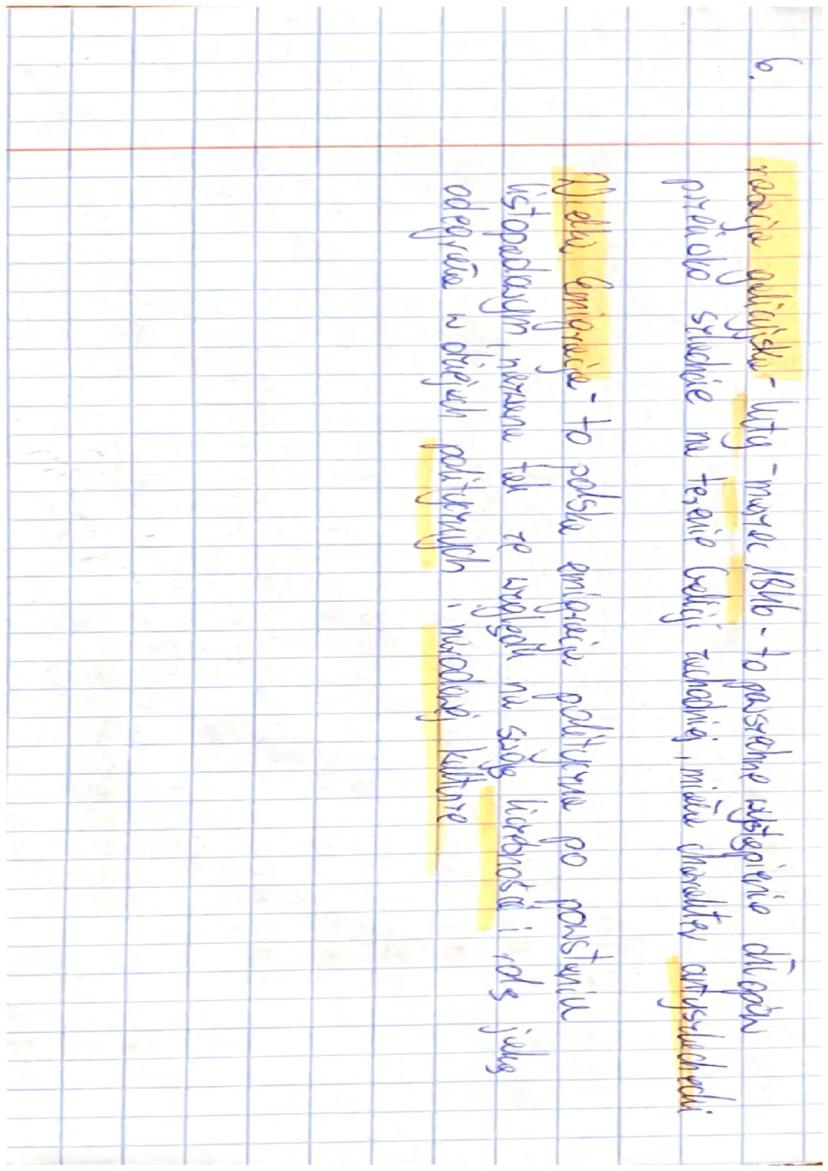 6.
rabacja galicyjska - luty - marzec 1846 - to powszechne wystąpienie chłopów
przeciwko szlachcie na terenie Galicji zachodniej, miała charakter antyszlachecki
Wielka Emigracja - to polska emigracja polityczna po powstaniu
listopadowym, nazwana tak ze względu na swoją liczebność i rolę jaką
odegrała w dziejach politycznych i narodowej kulturze